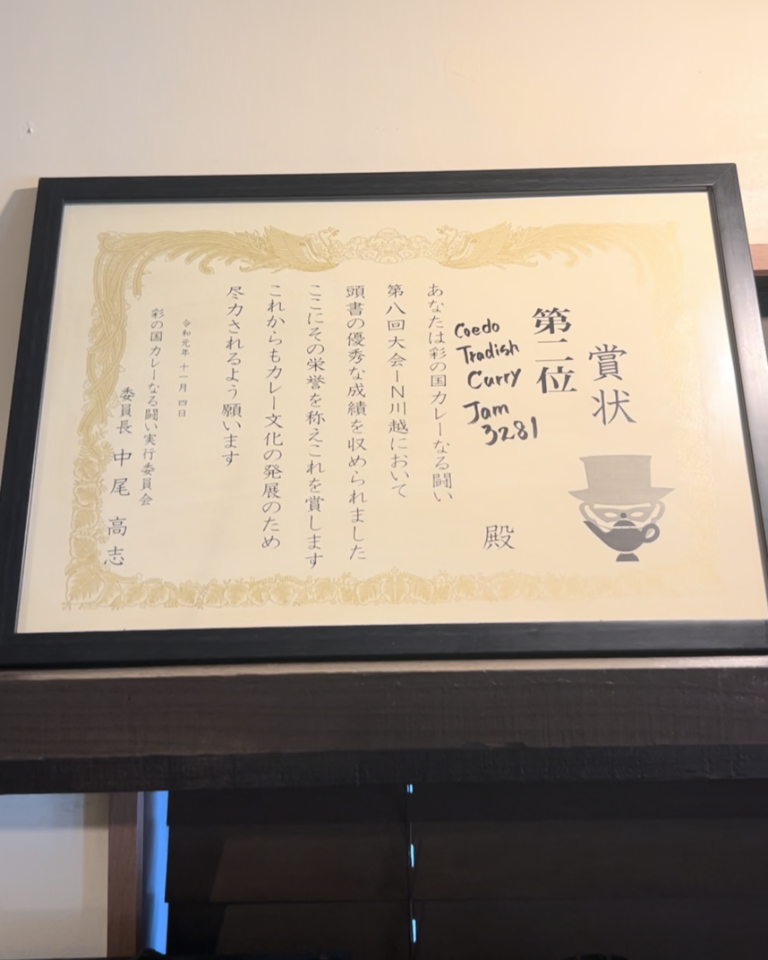 賞状
第二位
Coedo
Tradish
Curry
Jam
3281
殿
あなたは彩の国カレーなる闘い
第八回大会ーN川越において
頭書の優秀な成績を収められました
ここにその栄誉を称えこれを賞します
これからもカレー文化の発展のため
尽力されるよう願います
令和元年 十一月 四日
彩の国カレーなる闘い実行委員会
委員長 中尾 高志